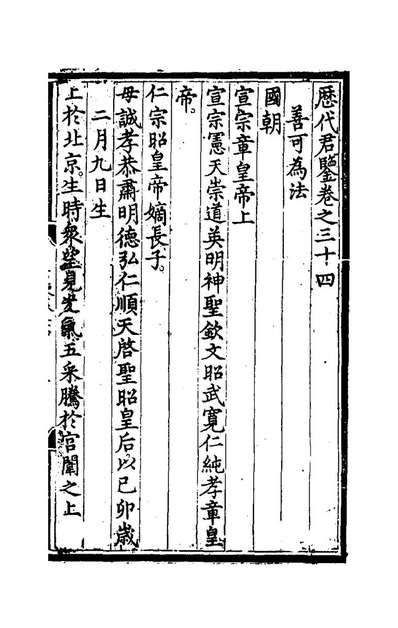 歴代君鑒卷之三十四
善可為法
國朝
宣宗章皇帝上
宣宗憲天崇道英明神聖欽文昭武寬仁純孝章皇
帝。
仁宗昭皇帝嫡長子。
母誠孝恭肅明德弘仁順天啓聖昭皇后以己卯歲
二月九日生
上於北京。生時衆望見光氣五采騰於宮闈之上